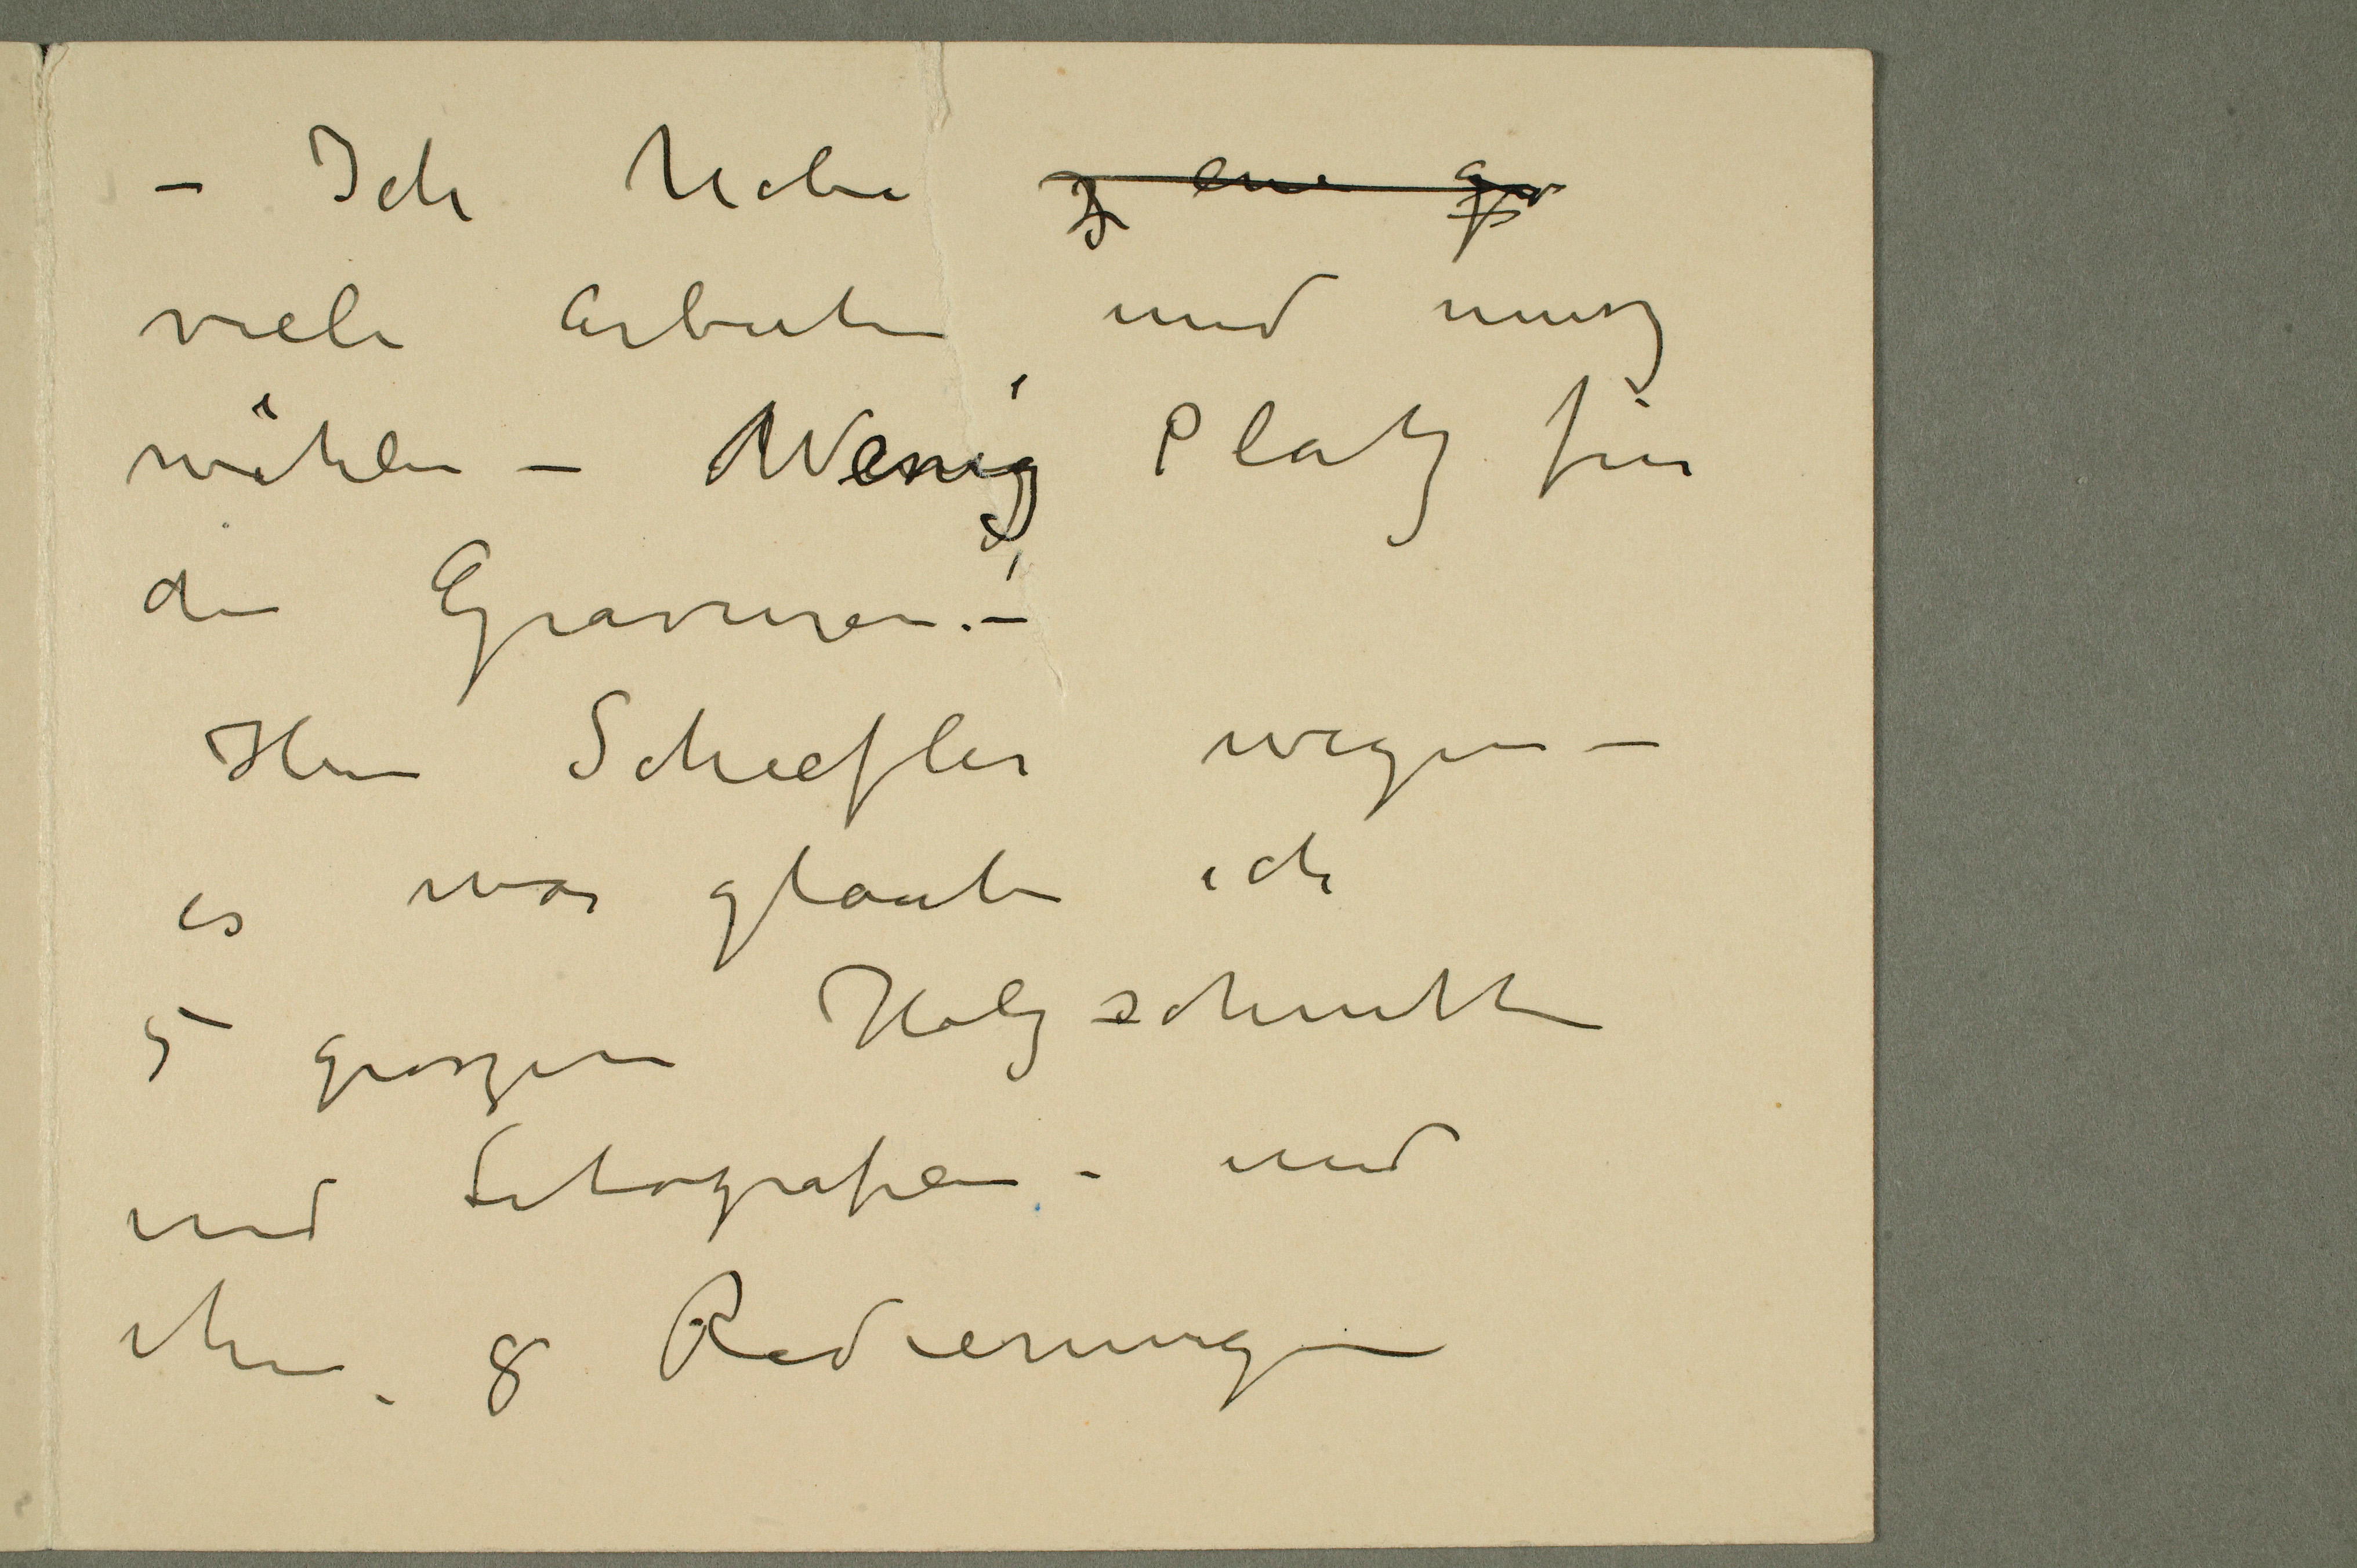 – Ich habe
viele Arbeiten und musz
wählen – Wenig Platz für
die Gravuren. –
Herrn Schiefler wegen –
es war glaube ich
5 groszen Holzschnitte
und Litografien – und
etwa 8 Radierungen